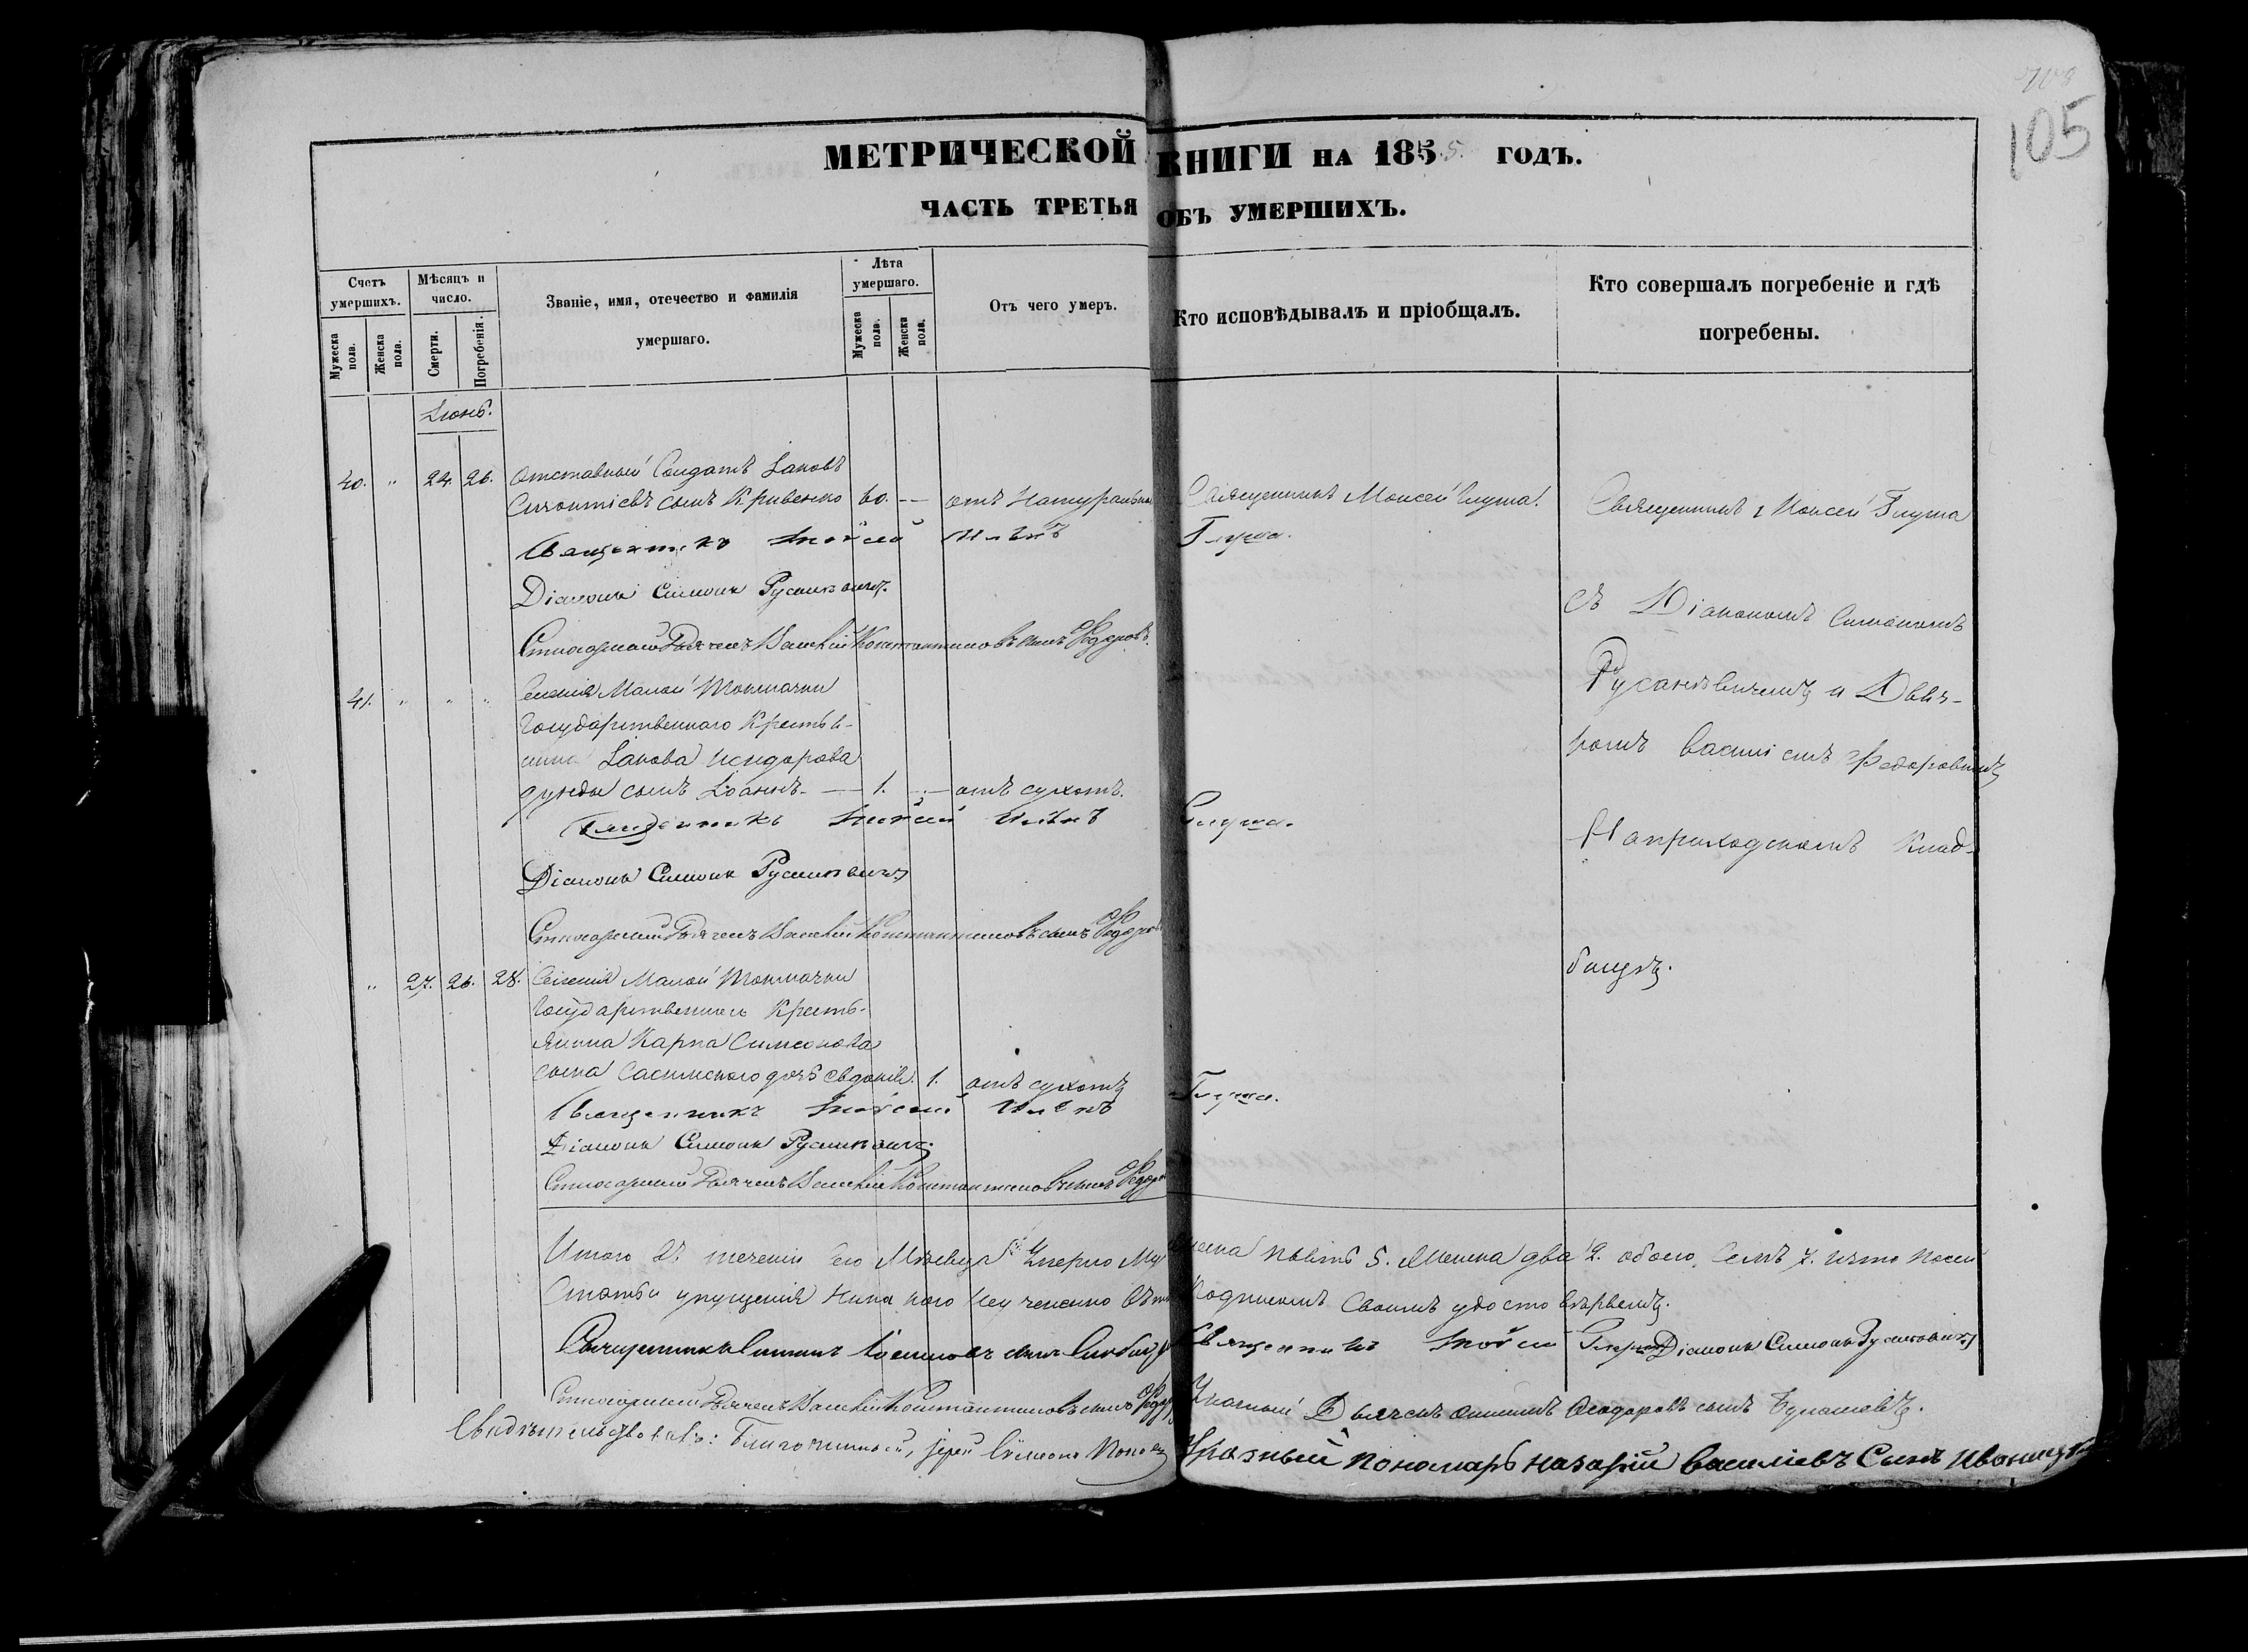 105
МЕТРИЧЕСКОЙ КНИГИ НА 1855. ГОДЪ.
ЧАСТЬ ТРЕТЬЯ ОБЪ УМЕРШИХЪ.
Счетъ умершихъ.
Мужеска пола.
Женска пола.
Мѣсяцъ и число.
Смерти.
Погребенія.
Званіе, имя, отечество и фамилія умершаго.
Лѣта умершаго.
Мужеска пола.
Женска пола.
Отъ чего умеръ.
Кто исповѣдывалъ и пріобщалъ.
Кто совершалъ погребеніе и гдѣ погребены.
Іюнь.
40. " 24. 26. Отставный Солдатъ Іаковъ
сынъ Кривенко 60. — отъ Натуральной Священникъ Моисей Глуша. Священникъ Моисей Глуша
Священникъ Моисей Глуша.
Діаконъ Симонъ Русановичъ.
съ Діакономъ Симономъ
Стихарный Дьячекъ Василій Константиновъ сынъ Федоровъ.
Русановичемъ и Дьяч-
комъ Василіемъ Федоровымъ
На приходскомъ Клад-
бищѣ.
41. " " " Селенія Малой Токмачки
Государственного Крестья-
нина Іакова Исидорова
сынъ Іоаннъ. — 1. — отъ сухотъ.
Священникъ Моисей Глуша.
Діаконъ Симонъ Русановичъ
Стихарный Дьячекъ Василій Константиновъ сынъ Федоровъ
" 27. 26. 28. Селенія Малой Токмачки
Государственного Кресть-
янина Карпа Симеонова
сына дочь Евдокія. 1. отъ сухотъ
Священникъ Моисей Глуша.
Діаконъ Симонъ Русановичъ.
Стихарный Дьячекъ Василій Константиновъ сынъ Федоровъ
Итого въ теченіи сего Мѣсяца Умерло Мужеска пять 5. Женска два 2. обоего семь 7. что по сей
Статьи упущенія никакого не учинено въ томъ Подписомъ Своимъ удостовѣряемъ.
Священникъ Моисей Глуша Діаконъ Симонъ Русановичъ
Стихарный Дьячекъ Василій Константиновъ сынъ Федоровъ Указный Дьячекъ Феодоровъ сынъ
Свидѣтельствовалъ: Благочинный, Іерей Симеонъ
Указный Пономарь Назарій Василіевъ Сынъ